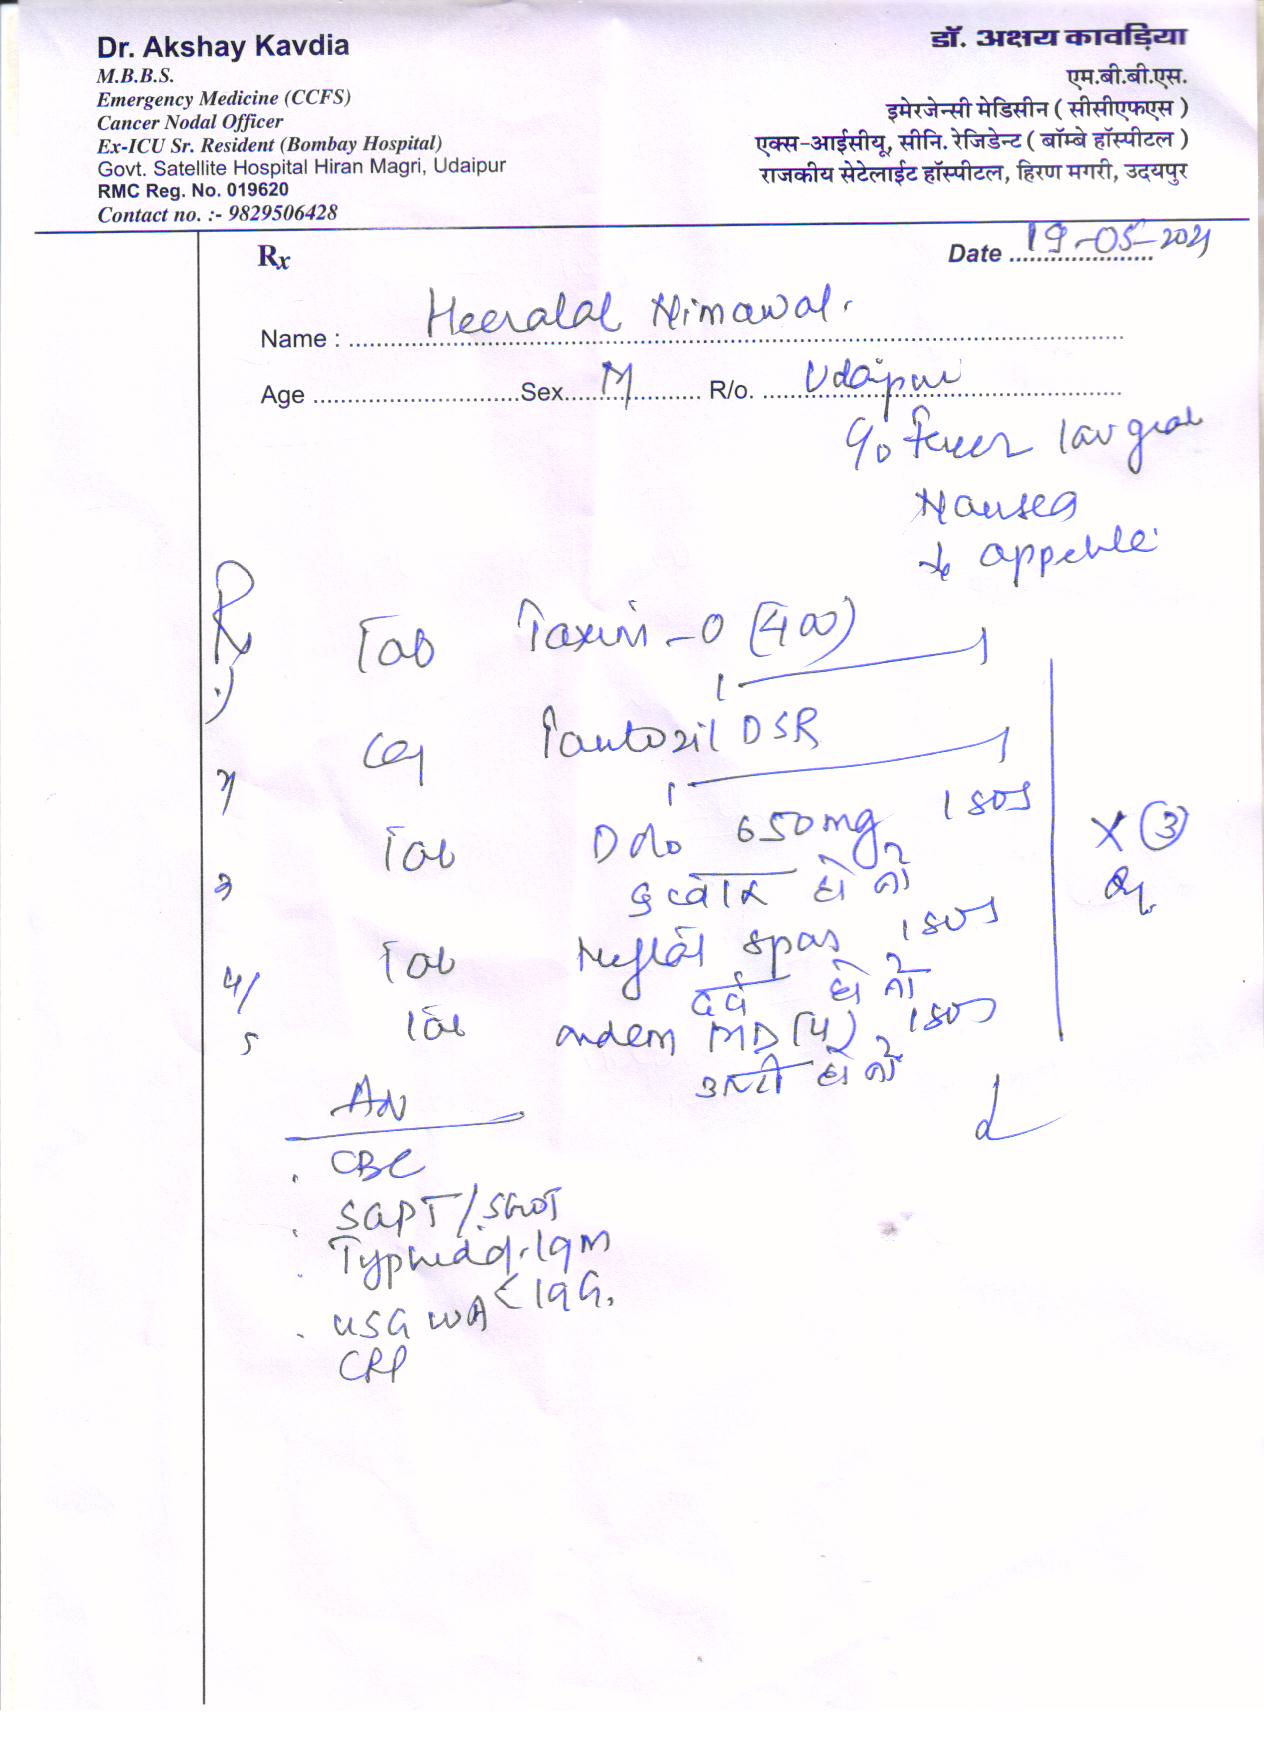 Dr. Akshay Kavdia
M.B.B.S.
Emergency Medicine (CCFS)
Cancer Nodal Officer
Ex-ICU Sr. Resident (Bombay Hospital)
Govt. Satellite Hospital Hiran Magri, Udaipur
RMC Reg. No. 019620
Contact no. :- 9829506428
डॉ. अक्षय कावड़िया
एम.बी.बी.एस.
इमेरजेन्सी मेडिसीन ( सीसीएफएस )
एक्स-आईसीयू, सीनि. रेजिडेन्ट ( बॉम्बे हॉस्पीटल )
राजकीय सेटेलाईट हॉस्पीटल, हिरण मगरी, उदयपुर
Rx
Date 19-05-2021
Name : Heeralal Nimawal.
Age Sex M R/o. Udaipur
c/o fever low grade
Nausea
appetite
Tab Taxim-O (400)
Cap Pantozil DSR
Tab Dolo 650mg 1 SOS
बुखार हो तो
Tab Meftal spas 1 SOS
दर्द हो तो
Tab ondem MD (4) 1 SOS
उल्टी हो तो
X 3
CBC
SGPT/SGOT
Typhidot IgM
IgG.
USG WA
CRP